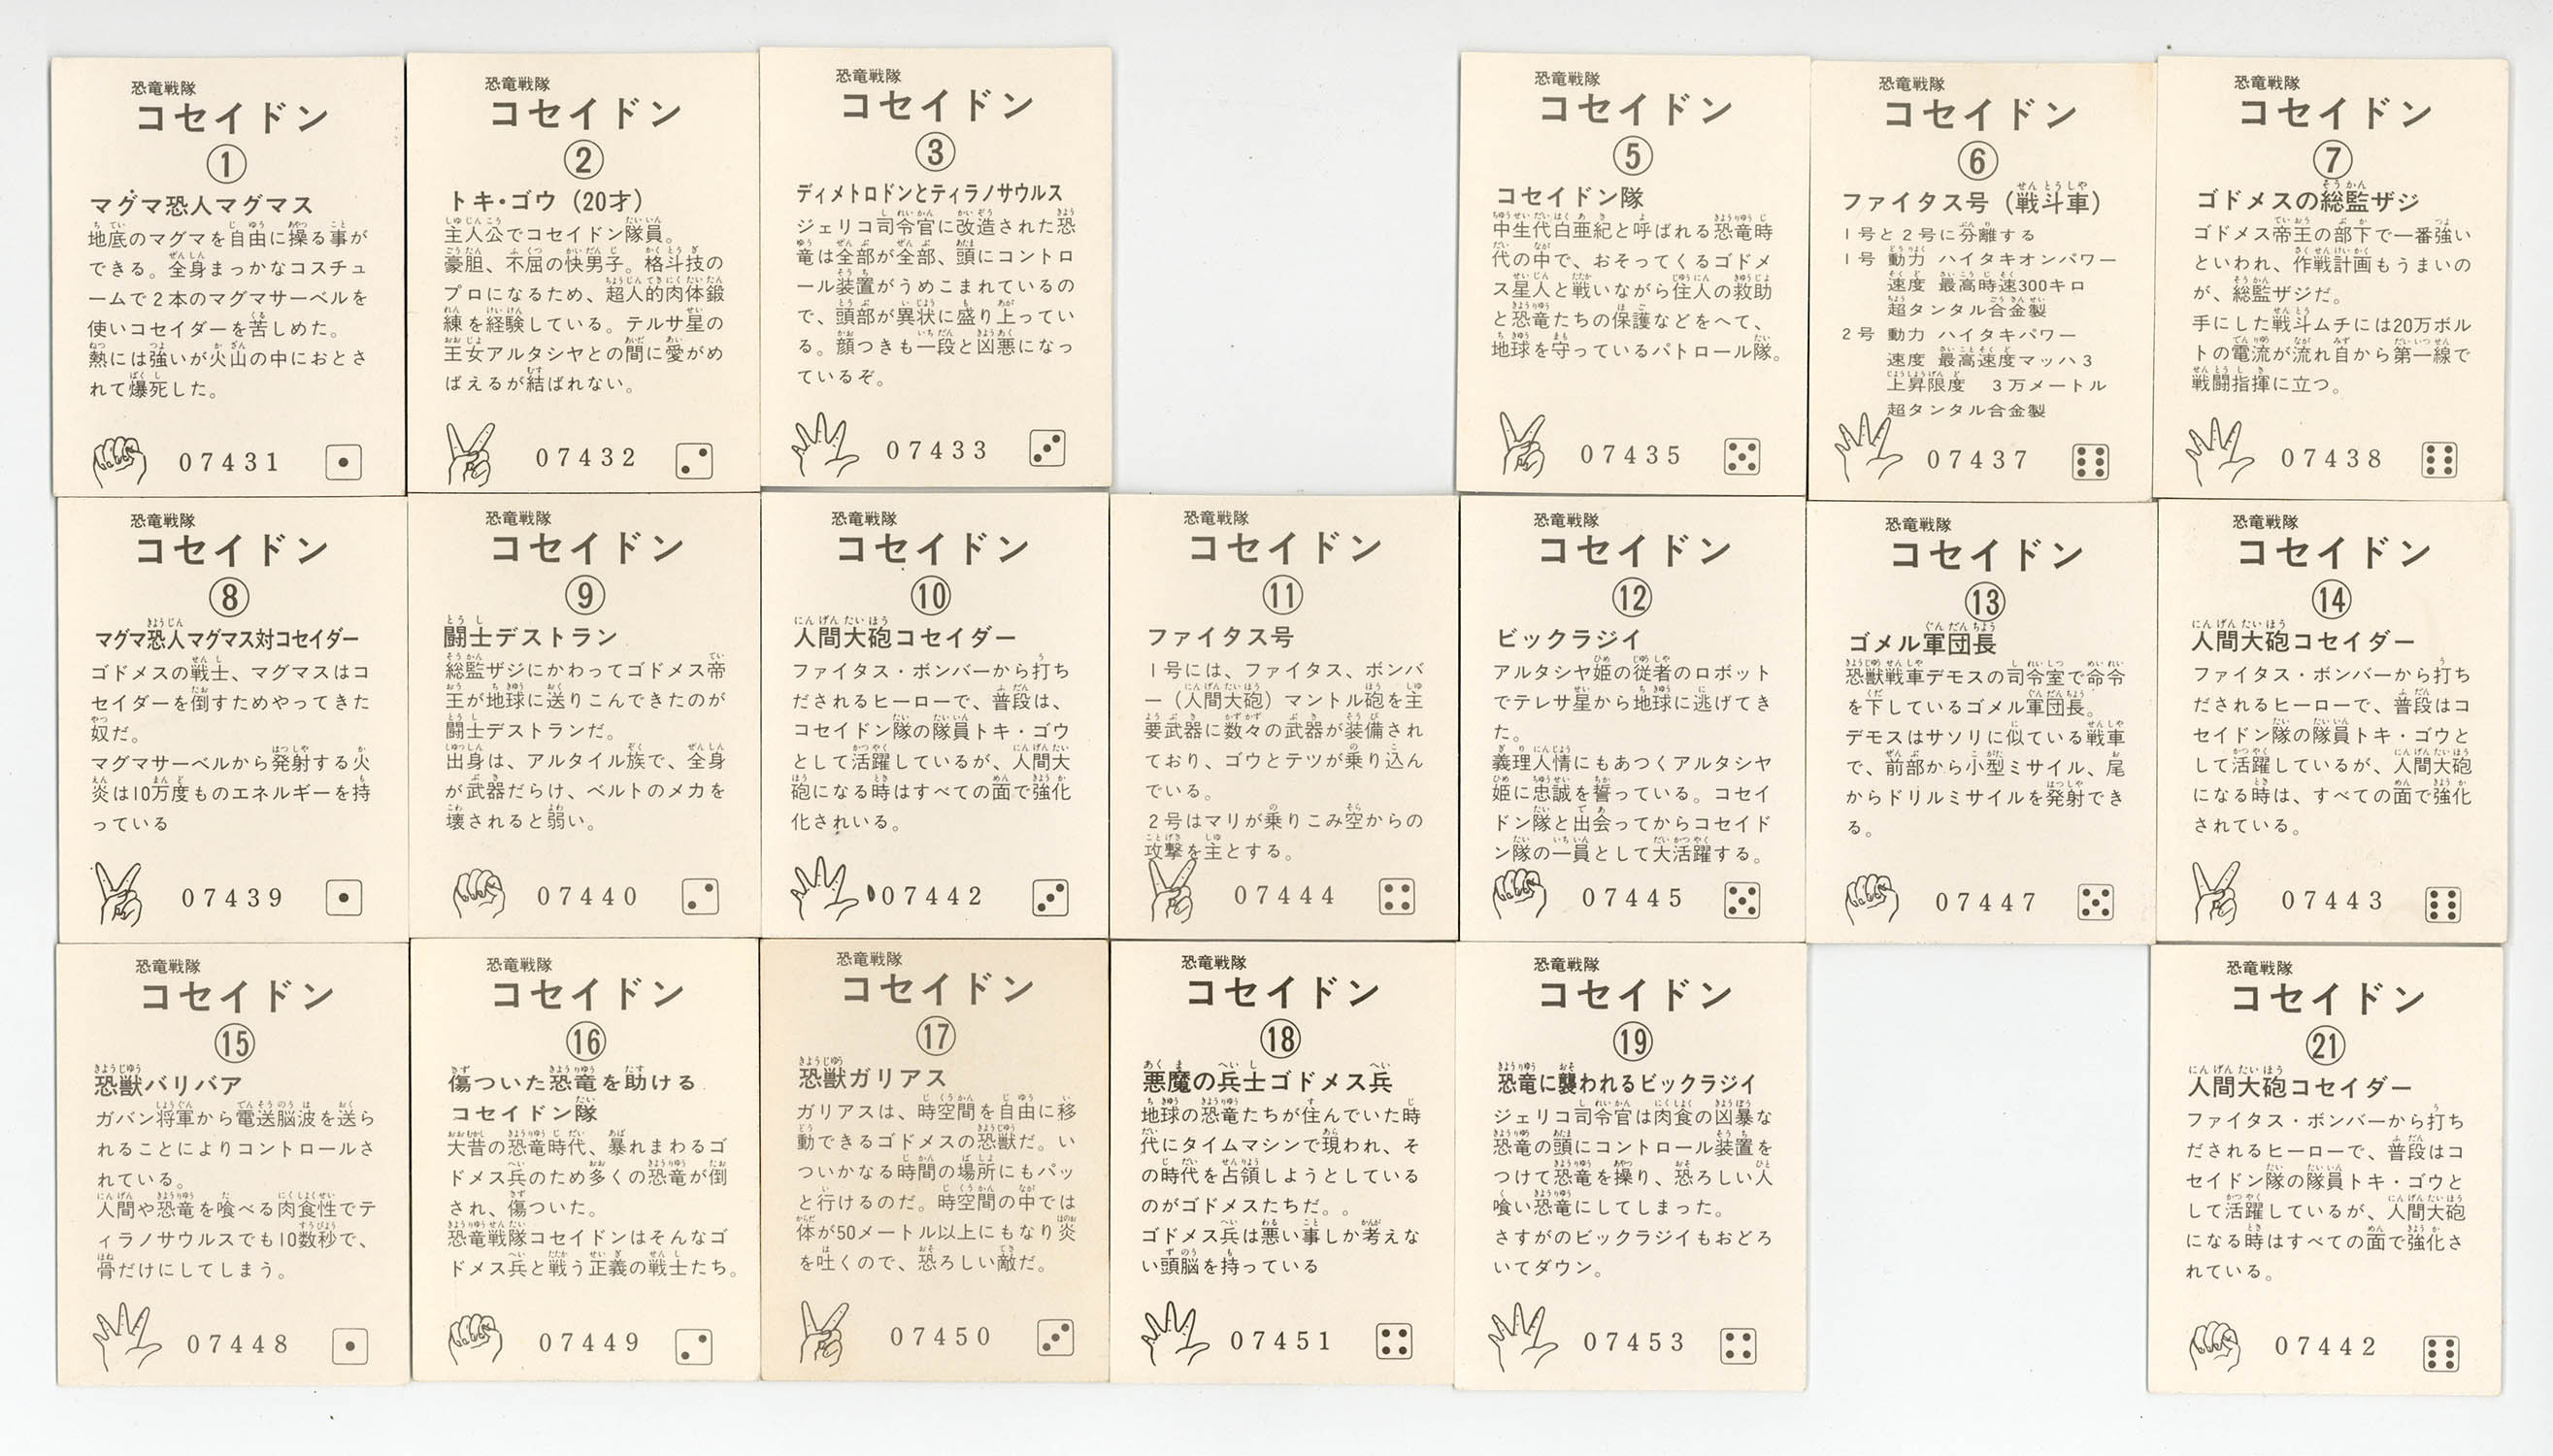 恐竜戦隊
コセイドン
①
マグマ恐人マグマス
地底のマグマを自由に操る事が
できる。全身まっかなコスチュ
ームで2本のマグマサーベルを
使いコセイダーを苦しめた。
熱には強いが火山の中におとさ
れて爆死した。
07431
恐竜戦隊
コセイドン
②
トキ・ゴウ(20才)
主人公でコセイドン隊員。
豪胆、不屈の快男子。格斗技の
プロになるため、超人的肉体鍛
練を経験している。テルサ星の
王女アルタシヤとの間に愛がめ
ばえるが結ばれない。
07432
恐竜戦隊
コセイドン
③
ディメトロドンとティラノサウルス
ジェリコ司令官に改造された恐
竜は全部が全部、頭にコントロ
ール装置がうめこまれているの
で、頭部が異状に盛り上ってい
る。顔つきも一段と凶悪になっ
ているぞ。
07433
恐竜戦隊
コセイドン
⑤
コセイドン隊
中生代白亜紀と呼ばれる恐竜時
代の中で、おそってくるゴドメ
ス星人と戦いながら住人の救助
と恐竜たちの保護などをへて、
地球を守っているパトロール隊。
07435
恐竜戦隊
コセイドン
⑥
ファイタス号(戦斗車)
1号と2号に分離する
1号 動力 ハイタキオンパワー
速度 最高時速300キロ
超タンタル合金製
2号 動力 ハイタキパワー
速度 最高速度マッハ3
上昇限度 3万メートル
超タンタル合金製
07437
恐竜戦隊
コセイドン
⑦
ゴドメスの総監ザジ
ゴドメス帝王の部下で一番強い
といわれ、作戦計画もうまいの
が、総監ザジだ。
手にした戦斗ムチには20万ボル
トの電流が流れ自から第一線で
戦闘指揮に立つ。
07438
恐竜戦隊
コセイドン
⑧
マグマ恐人マグマス対コセイダー
ゴドメスの戦士、マグマスはコ
セイダーを倒すためやってきた
奴だ。
マグマサーベルから発射する火
炎は10万度ものエネルギーを持
っている
07439
恐竜戦隊
コセイドン
⑨
闘士デストラン
総監ザジにかわってゴドメス帝
王が地球に送りこんできたのが
闘士デストランだ。
出身は、アルタイル族で、全身
が武器だらけ、ベルトのメカを
壊されると弱い。
07440
恐竜戦隊
コセイドン
⑩
人間大砲コセイダー
ファイタス・ボンバーから打ち
だされるヒーローで、普段は、
コセイドン隊の隊員トキ・ゴウ
として活躍しているが、人間大
砲になる時はすべての面で強化
化されいる。
07442
恐竜戦隊
コセイドン
⑪
ファイタス号
1号には、ファイタス、ボンバ
ー(人間大砲)マントル砲を主
要武器に数々の武器が装備され
ており、ゴウとテツが乗り込ん
でいる。
2号はマリが乗りこみ空からの
攻撃を主とする。
07444
恐竜戦隊
コセイドン
⑫
ビックラジイ
アルタシヤ姫の従者のロボット
でテレサ星から地球に逃げてき
た。
義理人情にもあつくアルタシヤ
姫に忠誠を誓っている。コセイ
ドン隊と出会ってからコセイド
ン隊の一員として大活躍する。
07445
恐竜戦隊
コセイドン
⑬
ゴメル軍団長
恐獣戦車デモスの司令室で命令
を下しているゴメル軍団長。
デモスはサソリに似ている戦車
で、前部から小型ミサイル、尾
からドリルミサイルを発射でき
る。
07447
恐竜戦隊
コセイドン
⑭
人間大砲コセイダー
ファイタス・ボンバーから打ち
だされるヒーローで、普段はコ
セイドン隊の隊員トキ・ゴウと
して活躍しているが、人間大砲
になる時は、すべての面で強化
されている。
07443
恐竜戦隊
コセイドン
⑮
恐獣バリバア
ガバン将軍から電送脳波を送ら
れることによりコントロールさ
れている。
人間や恐竜を喰べる肉食性でテ
ィラノサウルスでも10数秒で、
骨だけにしてしまう。
07448
恐竜戦隊
コセイドン
⑯
傷ついた恐竜を助ける
コセイドン隊
大昔の恐竜時代、暴れまわるゴ
ドメス兵のため多くの恐竜が倒
され、傷ついた。
恐竜戦隊コセイドンはそんなゴ
ドメス兵と戦う正義の戦士たち。
07449
恐竜戦隊
コセイドン
⑰
恐獣ガリアス
ガリアスは、時空間を自由に移
動できるゴドメスの恐獣だ。い
ついかなる時間の場所にもパッ
と行けるのだ。時空間の中では
体が50メートル以上にもなり炎
を吐くので、恐ろしい敵だ。
07450
恐竜戦隊
コセイドン
⑱
悪魔の兵士ゴドメス兵
地球の恐竜たちが住んでいた時
代にタイムマシンで現われ、そ
の時代を占領しようとしている
のがゴドメスたちだ。。
ゴドメス兵は悪い事しか考えな
い頭脳を持っている
07451
恐竜戦隊
コセイドン
⑲
恐竜に襲われるビックラジイ
ジェリコ司令官は肉食の凶暴な
恐竜の頭にコントロール装置を
つけて恐竜を操り、恐ろしい人
喰い恐竜にしてしまった。
さすがのビックラジイもおどろ
いてダウン。
07453
恐竜戦隊
コセイドン
㉑
人間大砲コセイダー
ファイタス・ボンバーから打ち
だされるヒーローで、普段はコ
セイドン隊の隊員トキ・ゴウと
して活躍しているが、人間大砲
になる時はすべての面で強化さ
れている。
07442